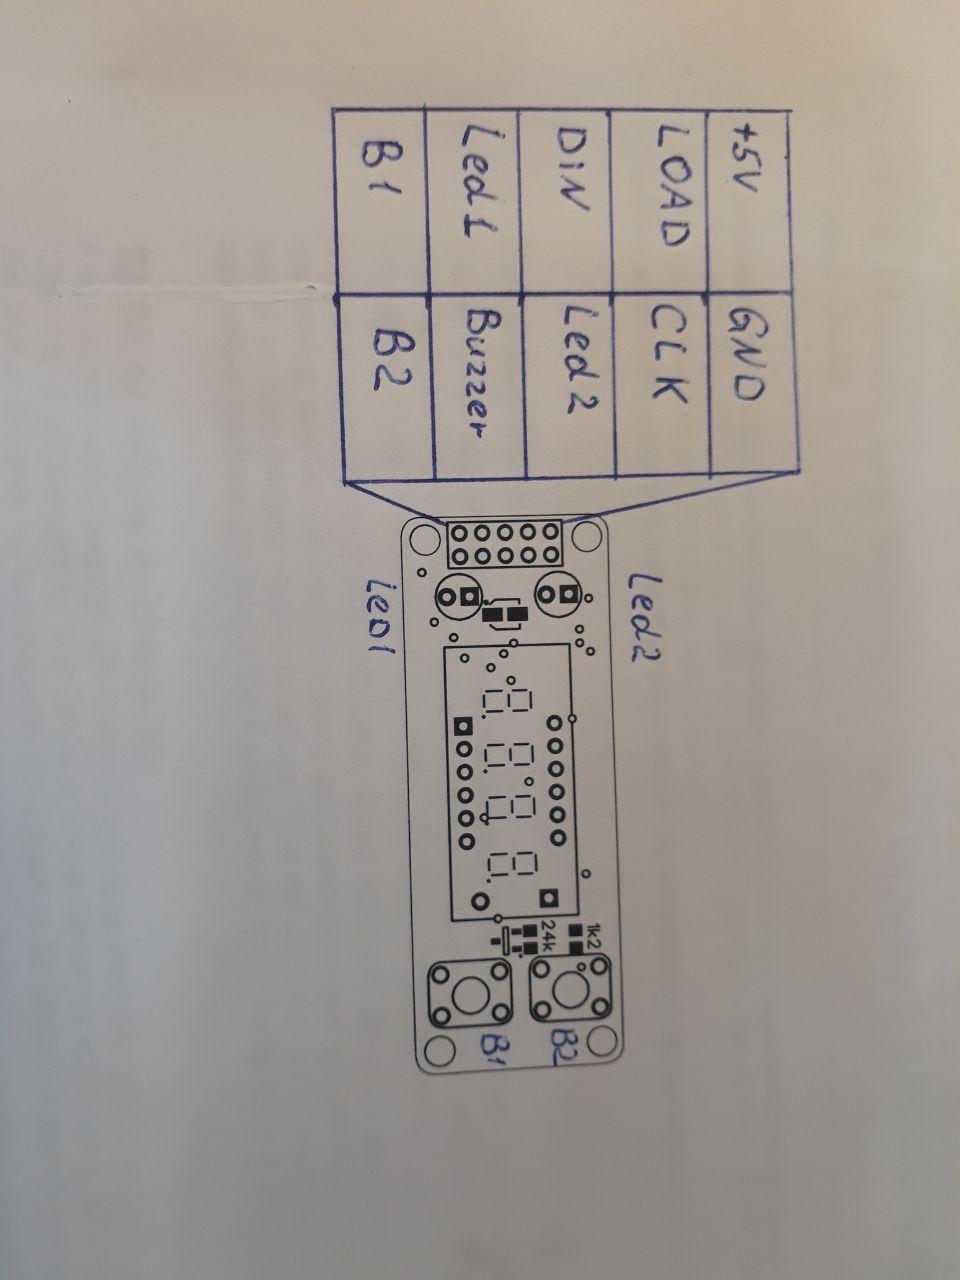 +5V GND
LOAD CLK
DiN Led2
Led1 Buzzer
B1 B2
Led2
1k2
B2
24k
B1
Led1